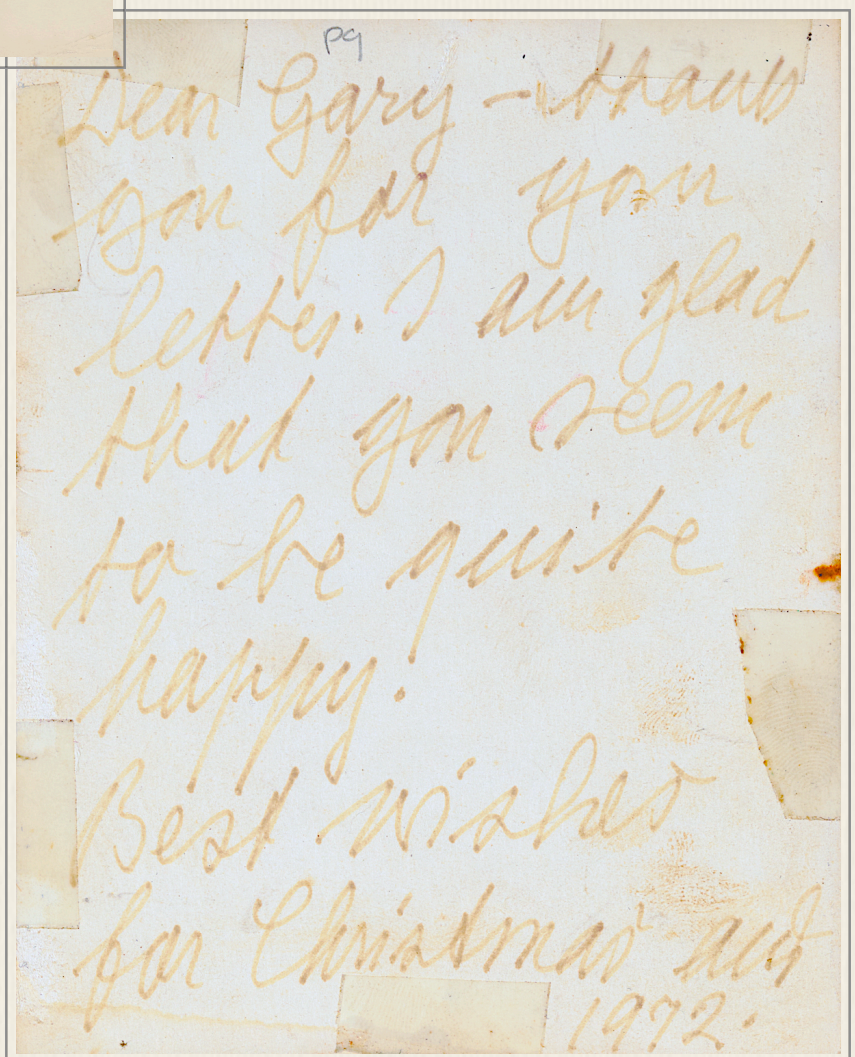 pg
Dear Gary - thank
you for your
letter. I am glad
that you seem
to be quite
happy.
Best wishes
for Christmas and
1972.